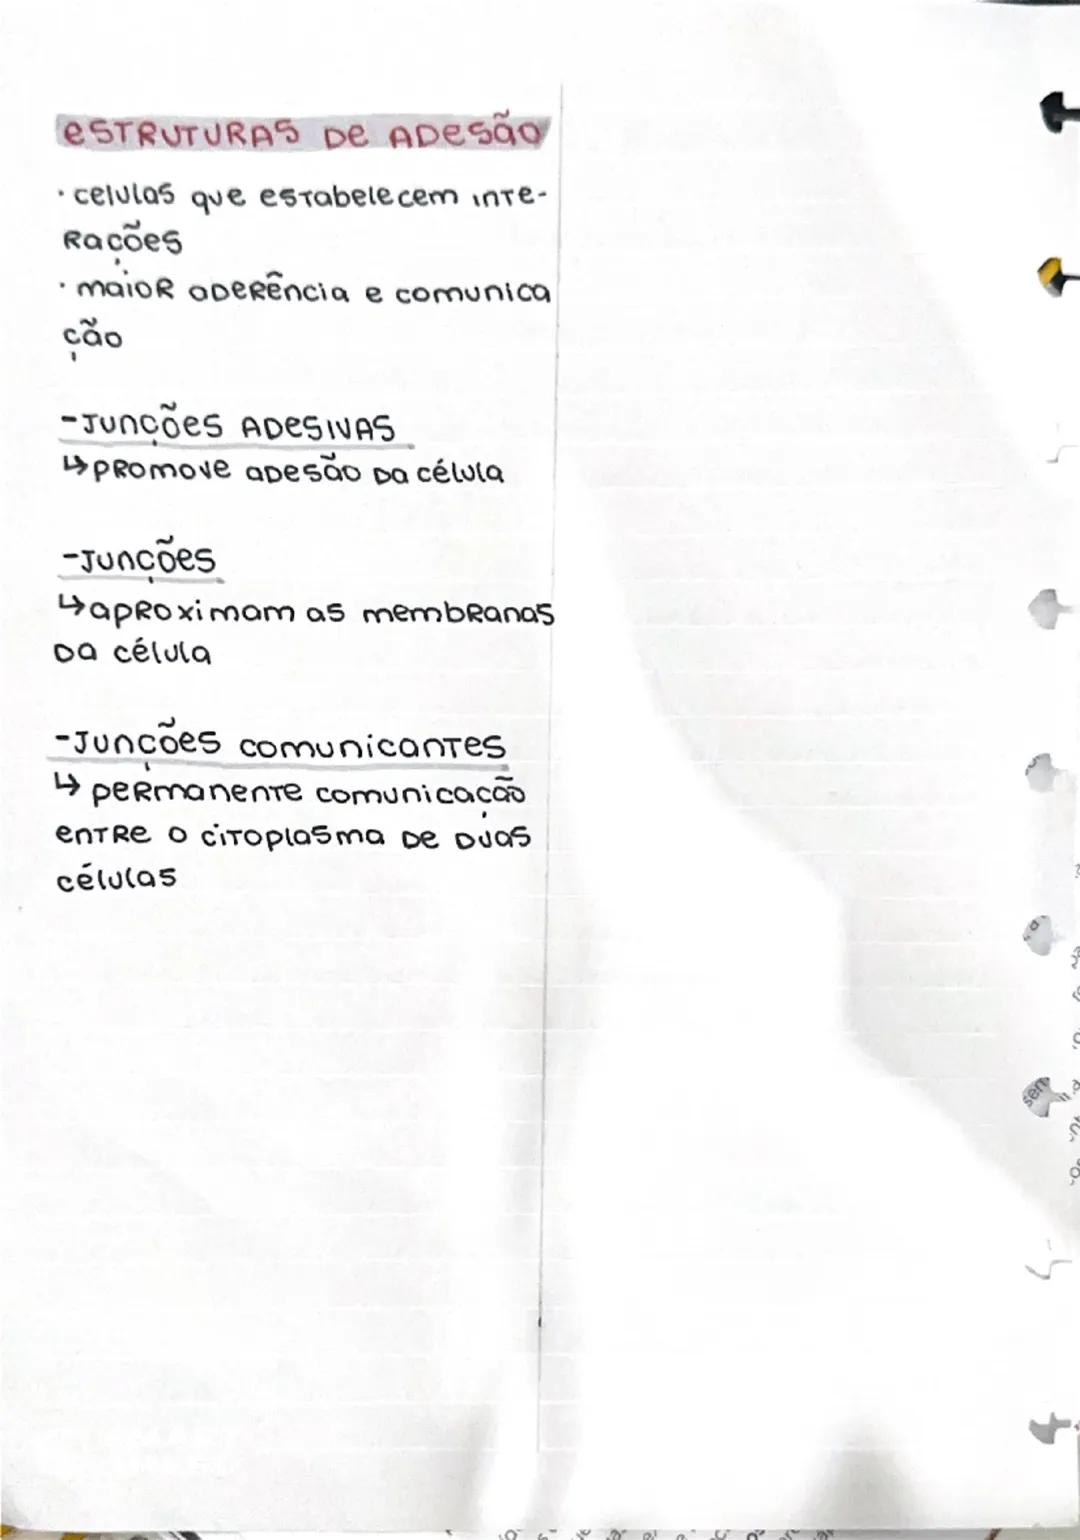 ESTRUTURAS DE ADESÃO
· celulas que estabelecem inte-
rações
· maior aderência e comunica
ção
-Junções ADESIVAS
↳ promove adesão da célula
-Junções
↳ aproximam as membranas
da célula
-Junções comunicantes
↳ permanente comunicação
entre o citoplasma de duas
células
sen